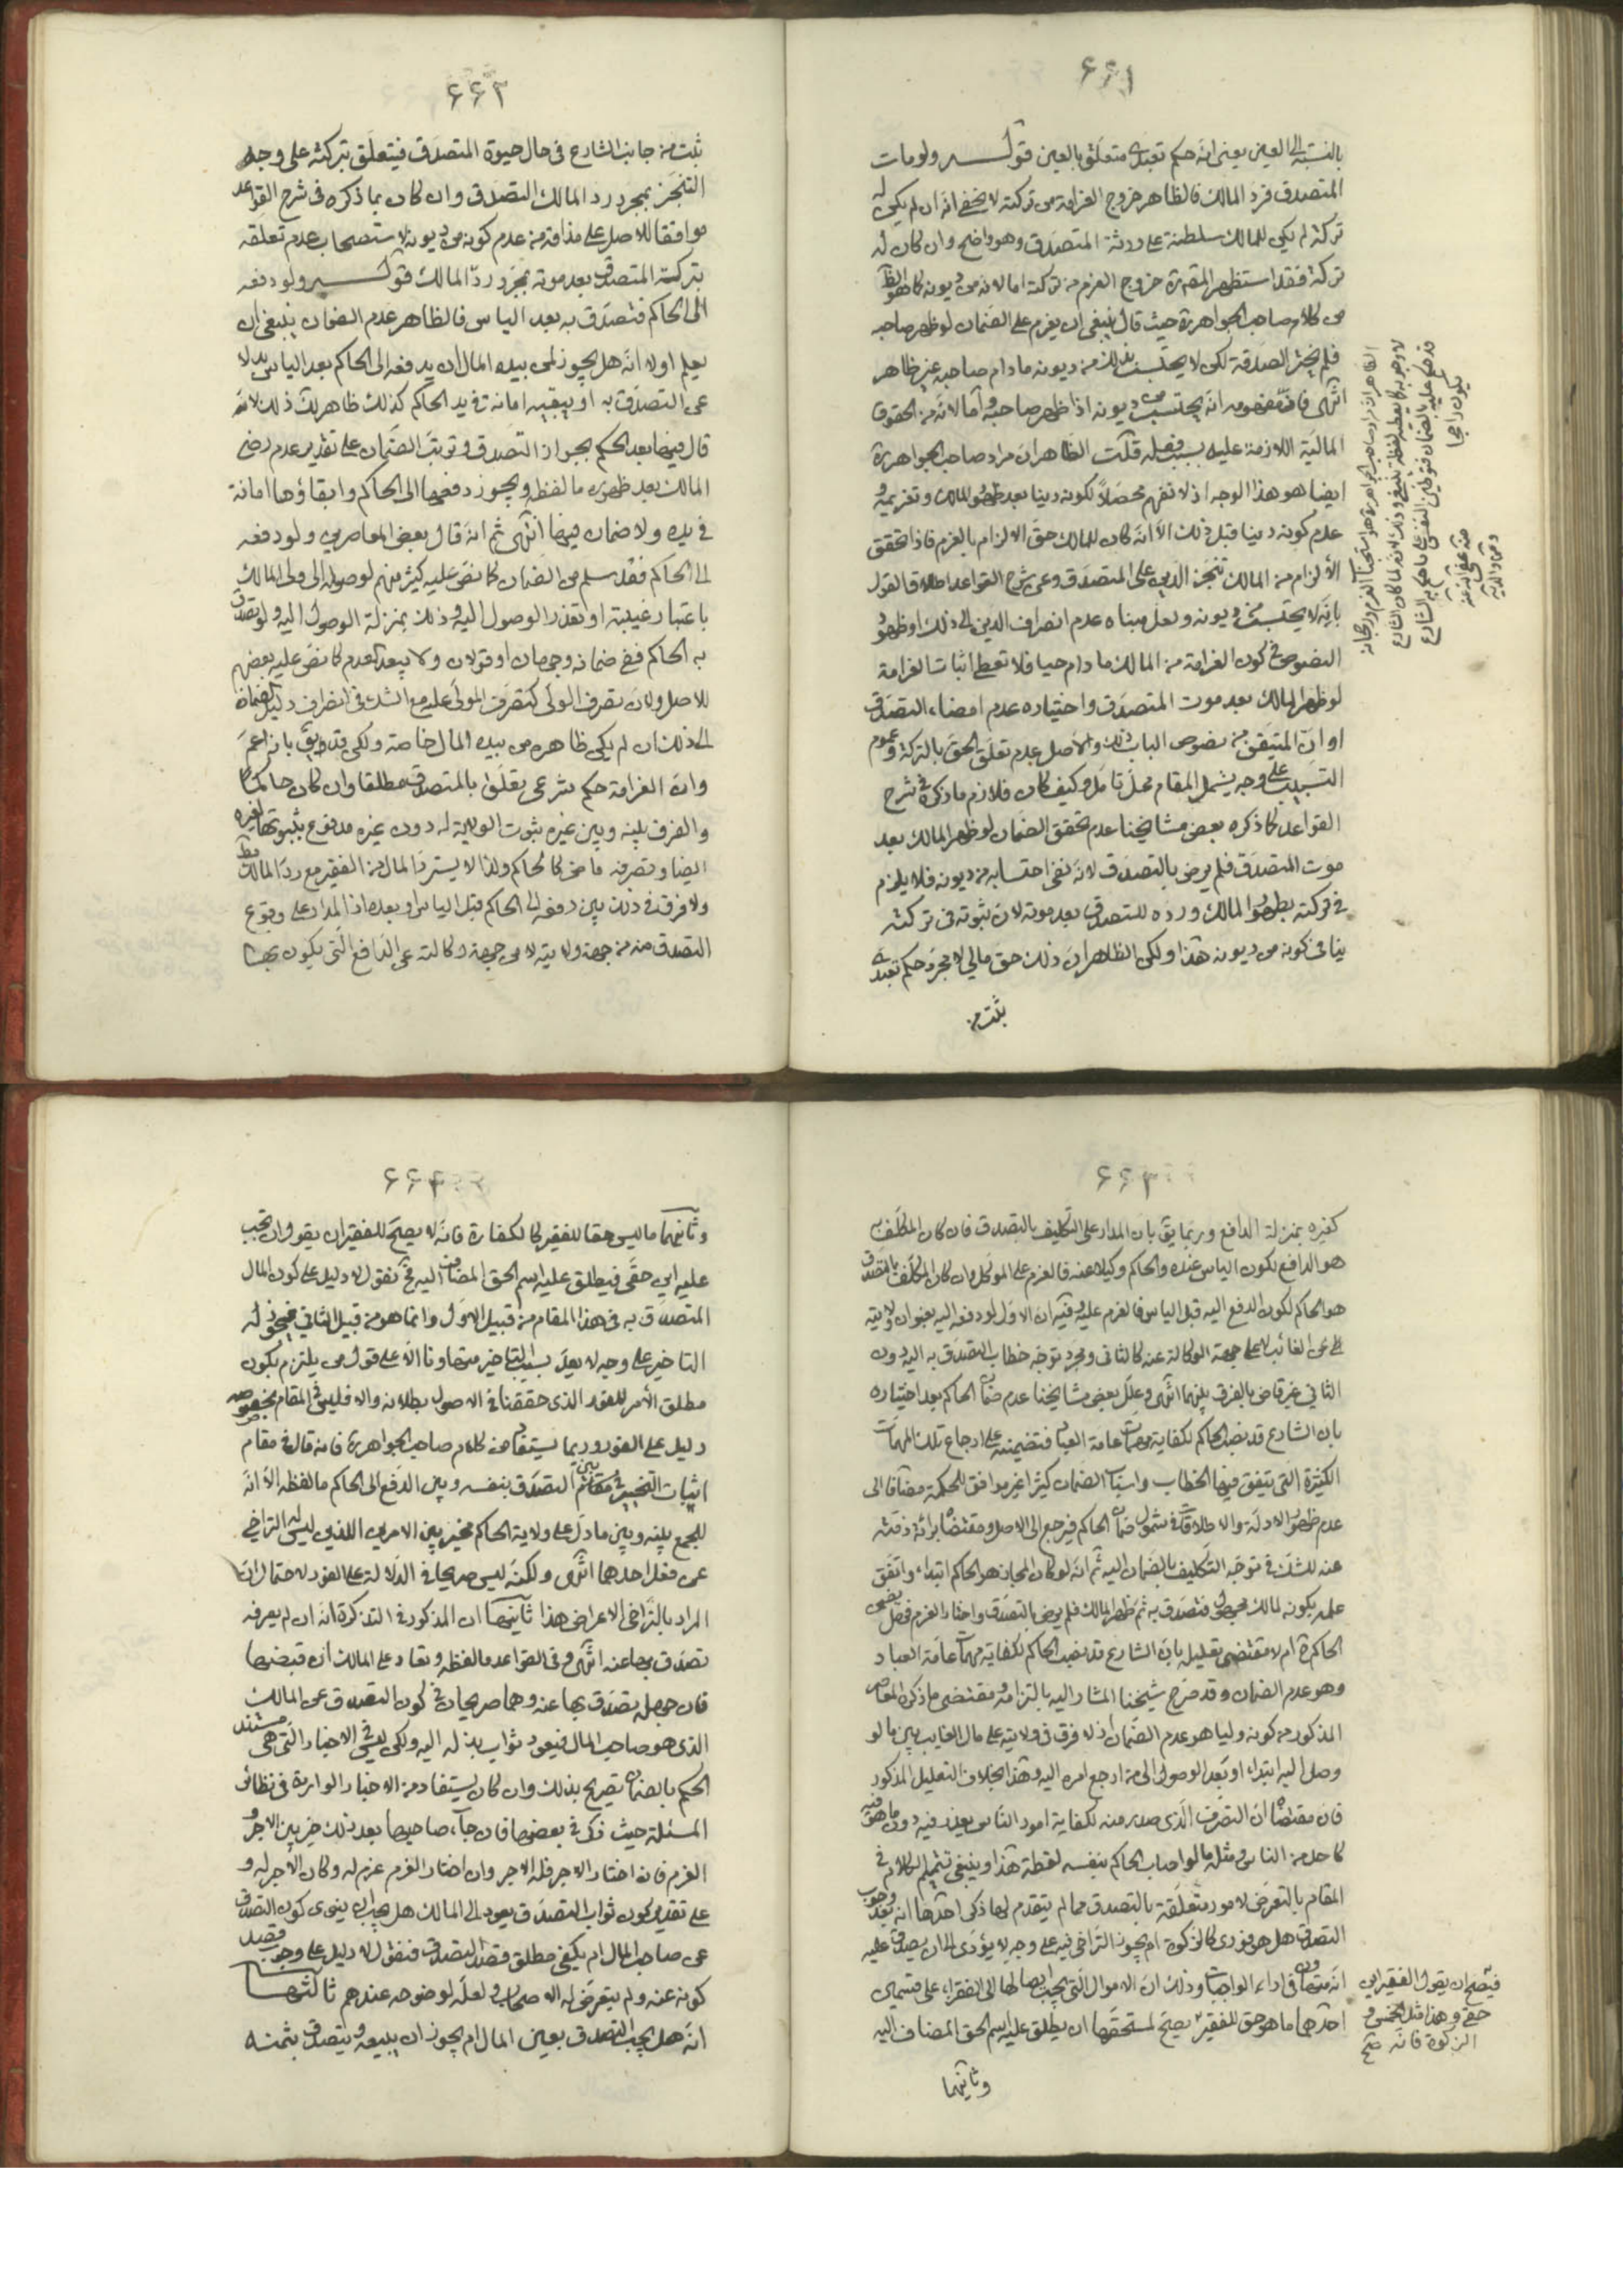 ۶۶۱
بالنسبة الى العين يعنى انه حكم تعبدى متعلق بالعين قوله ولو مات
المتصدق فرد المالك فالظاهر خروج الغرامة من تركته لا يخفى انه ان لم يكن له
تركة لم يكن للمالك سلطنة على ورثة المتصدق وهو واضح وان كان له
تركة فقد استظهر المصنف ره خروج الغرم من تركته اما لانه من ديونه كما هو الظ
من كلام صاحب الجواهر ره حيث قال ينبغى ان يغرم على الضمان لو ظهر صاحبه
فلم يختر الصدقة لكن لا يحتسب ذلك من ديونه مادام صاحبه غير ظاهر
انتهى فان مفهومه انه يحتسب من ديونه اذا ظهر صاحبه واما لانه من الحقوق
المالية اللازمة عليه بسبب فعله قلت الظاهر ان مراد صاحب الجواهر ره
ايضا هو هذا الوجه اذ لا نفهم محصلا لكونه دينا بعد ظهور المالك وتغريمه و
عدم كونه دينا قبل ذلك الا انه كان للمالك حق الالزام بالغرم فاذا تحقق
الالزام من المالك تنجز الدين على المتصدق وعن شرح القواعد اطلاق القول
بانه لا يحتسب من ديونه ولعل مبناه عدم انصراف الدين الى ذلك او ظهور
النصوص فى كون الغرامة من المالك مادام حيا فلا تعطى اثبات الغرامة
لو ظهر المالك بعد موت المتصدق واختياره عدم امضاء التصدق
او ان المتيقن من نصوص الباب ذلك والاصل عدم تعلق الحق بالتركة وعموم
التسبيب على وجه يشمل المقام محل تامل وكيف كان فلازم ما ذكره فى شرح
القواعد كما ذكره بعض مشايخنا عدم تحقق الضمان لو ظهر المالك بعد
موت المتصدق فلم يرض بالتصدق لانه نفى احتسابه من ديونه فلا يلزم
فى تركته بظهور المالك ورده للتصدق بعد موته لان ثبوته فى تركته
ينافى كونه من ديونه هذا ولكن الظاهر ان ذلك حق مالى لا مجرد حكم تعبدى
ثبت من
يكون راجحا
۶۶۲
ثبت من جانب الشارع فى حال حيوة المتصدق فيتعلق بتركته على وجه
التنجز بمجرد رد المالك التصدق وان كان ما ذكره فى شرح القواعد
موافقا للاصل على مذاقه من عدم كونه من ديونه لاستصحاب عدم تعلقه
بتركة المتصدق بعد موته بمجرد رد المالك قوله ولو دفعه
الى الحاكم فتصدق به بعد الياس فالظاهر عدم الضمان ينبغى ان
يعلم اولا انه هل يجوز لمن بيده المال ان يدفعه الى الحاكم بعد الياس بدلا
عن التصدق به او يبقيه امانة فى يد الحاكم كذلك ظاهر لك ذلك لانه
قال فيها بعد الحكم بجواز التصدق وترتب الضمان على تقدير عدم رضى
المالك بعد ظهوره ما لفظه ويجوز دفعها الى الحاكم وابقاؤها امانة
فى يده ولا ضمان فيها انتهى ثم انه قال بعض المعاصرين ولو دفعه
الى الحاكم فقد سلم من الضمان كما نص عليه كثير منهم لوصوله الى ولى المالك
باعتبار غيبته او تعذر الوصول اليه وذلك بمنزلة الوصول اليه ولو تصدق
به الحاكم ففى ضمانه وجهان او قولان ولا يبعد العدم كما نص عليه بعضهم
للاصل ولان تصرف الولى كتصرف المولى عليه مع الشك فى انصراف دليل الضمان
الى ذلك ان لم يكن ظاهره من بيده المال خاصة ولكن قد يق بانه اعم
وان الغرامة حكم شرعى تعلق بالمتصدق مطلقا وان كان حاكما
والفرق بينه وبين غيره بثبوت الولاية له دون غيره مدفوع بثبوتها لغيره
ايضا وتصرفه ماض كالحاكم ولذا لا يسترد المال من الفقير مع رد المالك
ولا فرق فى ذلك بين دفعه الى الحاكم قبل الياس او بعده اذ المدار على وقوع
التصدق منه من جهة ولايته لا من جهة وكالته عن الدافع التى يكون بها
۶۶۳
كغيره بمنزلة الدافع وربما يق بان المدار على التكليف بالتصدق فان كان المكلف به
هو الدافع لكون الياس عنده والحاكم وكيلا عنه فالغرم على الموكل وان كان المكلف بالتصدق
هو الحاكم لكون الدفع اليه قبل الياس فالغرم عليه وفيه ان الاول لو دفعه اليه بعنوان ولايته
على الغائب لا على جهة الوكالة عنه كالثانى ومجرد توجه خطاب التصدق به اليه دون
الثانى غير قاض بالفرق بينهما انتهى وعلل بعض مشايخنا عدم ضمان الحاكم بعد اختياره
بان الشارع قد نصب الحاكم لكفاية مهمات عامة العباد فتضمينه على ارجاع تلك المهمات
الكثيرة التى يتفق فيها الخطاب واسباب الضمان كثيرا غير موافق للحكمة مضافا الى
عدم ظهور الادلة والاطلاقات فى شمول ضمان الحاكم فيرجع الى الاصل ومقتضاه برائة ذمته
عنه للشك فى توجه التكليف بالضمان اليه ثم انه لو كان المجاز هو الحاكم ابتداء واتفق
علمه بكونه لمالك مجهول فتصدق به ثم ظهر المالك فلم يرض بالتصدق واختار الغرم فهل يضمن
الحاكم ره ام لا مقتضى تعليله بان الشارع قد نصب الحاكم لكفاية مهمات عامة العباد
وهو عدم الضمان وقد صرح شيخنا المشار اليه بالتزامه ومقتضى ما ذكره المعاصر
المذكور من كونه وليا هو عدم الضمان اذ لا فرق فى ولايته على مال الغايب بين ما لو
وصل اليه ابتداء او بعد الوصول الى من ارجع امره اليه وهذا بخلاف التعليل المذكور
فان مقتضاه ان التصرف الذى صدر منه لكفاية امور الناس يعذر فيه دون ما هو فيه
كاحد من الناس ومثله ما لو اصاب الحاكم بنفسه لقطة هذا وينبغى تتميم الكلام فى
المقام بالتعرض لامور متعلقة بالتصدق مما لم يتقدم لها ذكر احدها انه بعد وجوب
التصدق هل هو فورى كالزكوة ام يجوز التراخى فيه على وجه لا يؤدى الى ان يصدق عليه
انه متهاون فى اداء الواجبات وذلك ان الاموال التى يجب ايصالها الى الفقراء على قسمين
احدهما ما هو حق للفقير يصح لمستحقها ان يطلق عليه اسم الحق المضاف اليه
وثانيهما
فيصح ان يقول الفقير اين
حقى وهذا مثل الخمس و
الزكوة فانه صح
۶۶۴
وثانيهما ما ليس حقا للفقير كالكفارة فانه لا يصح للفقير ان يقول ان تجب
عليه اين حقى فيطلق عليه اسم الحق المضاف اليه فح نقول لا دليل على كون المال
المتصدق به فى هذا المقام من قبيل الاول وانما هو من قبيل الثانى فيجوز له
التاخير على وجه لا يعد بسبب التاخير متهاونا الا على قول من يلتزم بكون
مطلق الامر للفور الذى حققنا فى الاصول بطلانه والا فليس فى المقام بخصوصه
دليل على الفور وربما يستفاد من كلام صاحب الجواهر ره فانه قال فى مقام
اثبات التخيير فى مقام بين التصدق بنفسه وبين الدفع الى الحاكم ما لفظه الا انه
للجمع بينه وبين ما دل على ولاية الحاكم مخير بين الامرين اللذين ليس له التراخى
عن فعل احدهما انتهى ولكنه ليس صريحا فى الدلالة على الفور لاحتمال ان
المراد بالتراخى الاعراض هذا ثانيها ان المذكور فى التذكرة انه ان لم يعرفه
تصدق بها عنه انتهى وفى القواعد ما لفظه وتعاد على المالك ان قبضها
فان جهل تصدق بها عنه وهما صريحان فى كون التصدق عن المالك
الذى هو صاحب المال فيعود ثواب بذله اليه ولكن ليس فى الاخبار التى هى مستند
الحكم بالضمان تصريح بذلك وان كان يستفاد من الاخبار الواردة فى نظائر
المسئلة حيث ذكر فى بعضها فان جاء صاحبها بعد ذلك خير بين الاجر و
الغرم فان اختار الاجر فله الاجر وان اختار الغرم غرم له وكان الاجر له و
على تقدير كون ثواب التصدق يعود الى المالك هل يجب ان ينوى كون التصدق
عن صاحب المال ام يكفى مطلق قصد التصدق فنقول لا دليل على وجوب قصد
كونه عنه ولم يتعرض له الاصحاب ولعله لوضوحه عندهم ثالثها
انه هل يجب التصدق بعين المال ام يجوز ان يبيعه ويتصدق بثمنه